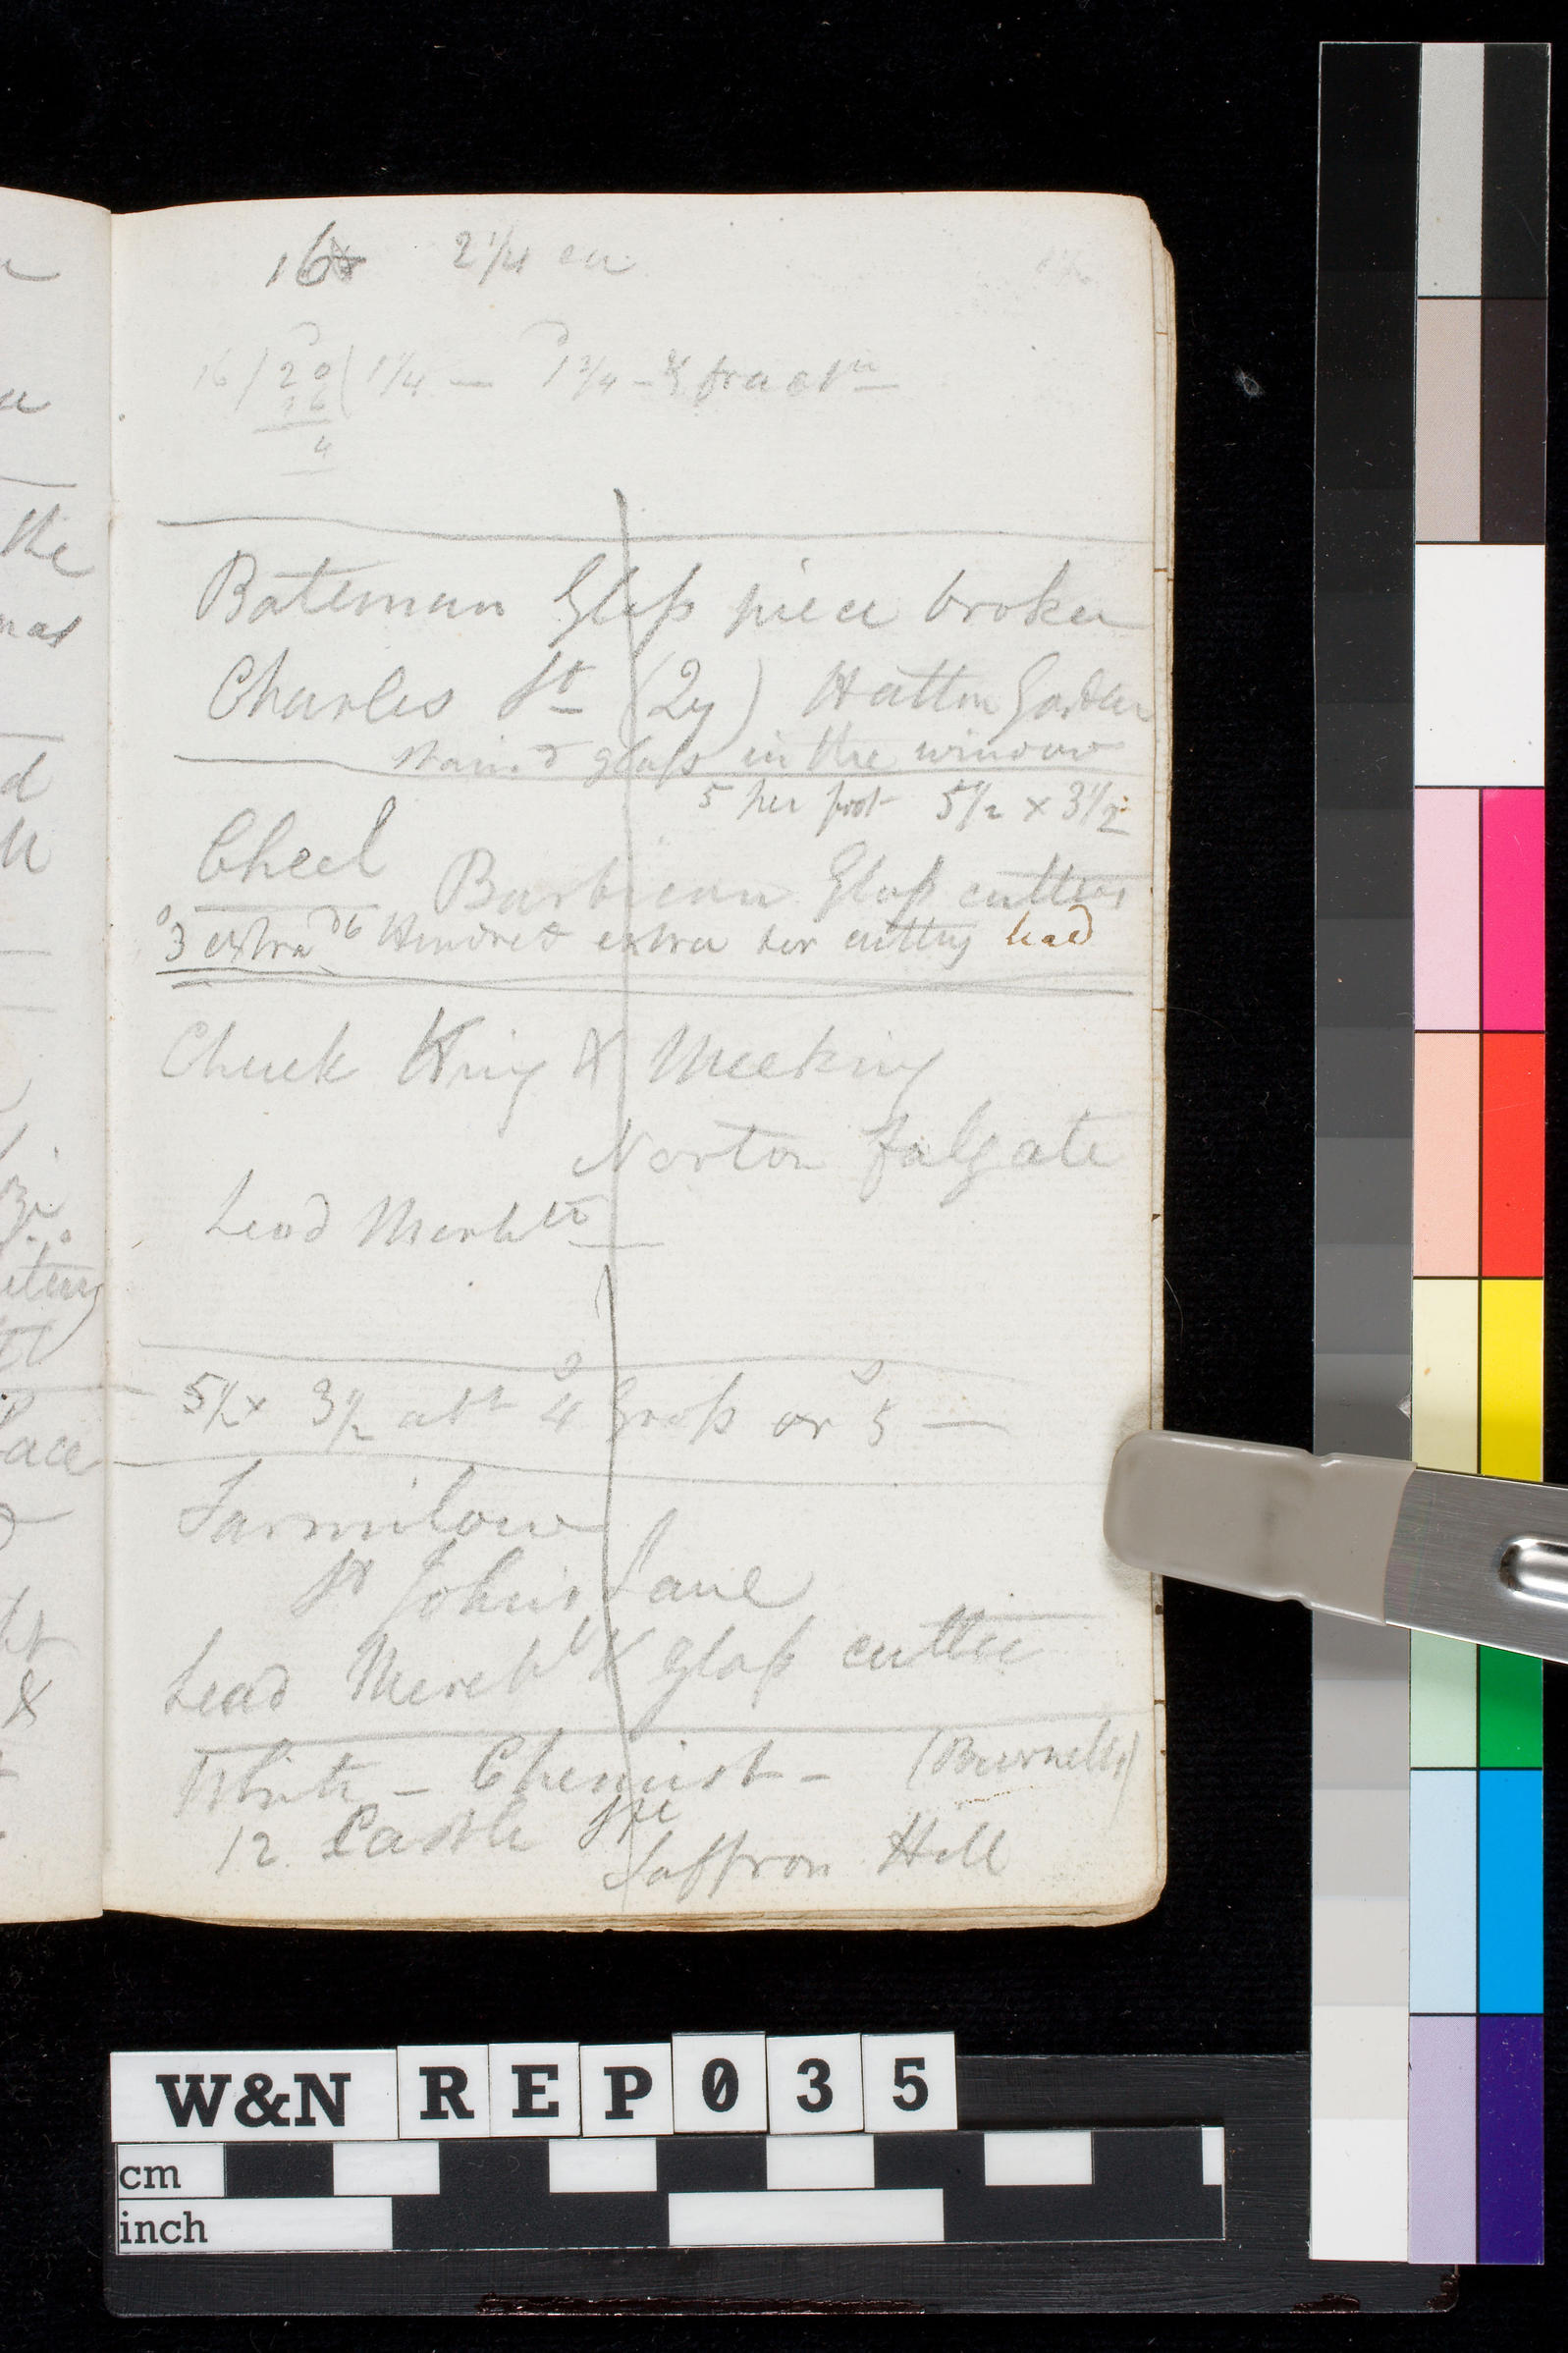 16 2 1/4 ea
16 / 20 ( 1 1/4 — 1 3/4 - & fract n
16
4
Bateman Glass piece broker
Charles St (27) Hatton Garden
Stain d glass in the window
5 per foot 5 1/2 x 3 1/2
Cheel
Barbican Glass cutters
3 extra 6 Hundred extra for cutting lead
Chuck King & Meeking
Norton falgate
Lead Merhts
5 1/2 x 3 1/2 at 4 Gross or 5 —
Farmilow
St Johns Lane
Lead Mercht & glass cutter
White - Chemist - (Burnells)
12 Castle Stre
Saffron Hill
the
d
ll
lace
&
W&N REP035
cm
inch